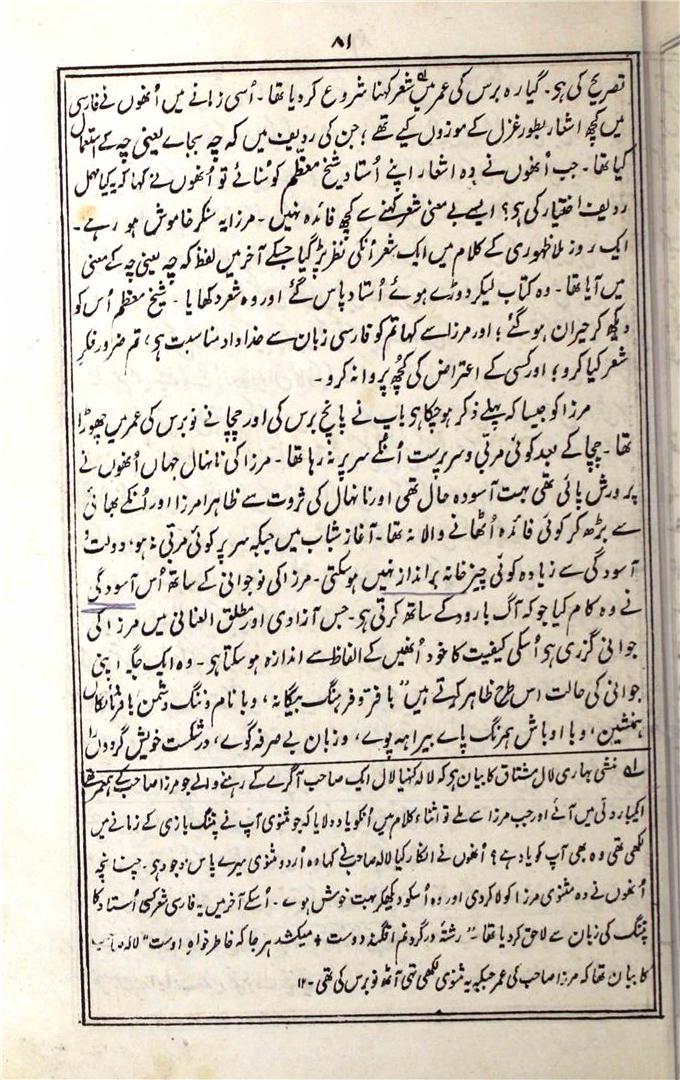 ۸۱
تصریح کی ہو۔ گیارہ برس کی عمر میں شعر کہنا شروع کر دیا تھا۔ اُسی زمانے میں اُنھوں نے فارسی
میں کچھ اشعار بطور غزل کے موزوں کیے تھے؛ جن کی ردیف میں کہ چہ بجاے یعنی چہ کے استعمال
کیا تھا۔ جب اُنھوں نے وہ اشعار اپنے اُستاد شیخ معظم کو سُنائے تو اُنھوں نے کہا کہ یہ کیا مہمل
ردیف اختیار کی ہو؟ ایسے بے معنی شعر کہنے سے کچھ فائدہ نہیں۔ مرزا یہ سنکر خاموش ہو رہے۔
ایک روز ملا ظہوری کے کلام میں ایک شعر اُنکی نظر پڑ گیا جسکے آخر میں لفظ کہ چہ یعنی چہ کے معنی
میں آیا تھا۔ وہ کتاب لیکر دوڑے ہوئے اُستاد پاس گئے اور وہ شعر دکھایا۔ شیخ معظم اُس کو
دیکھ کر حیران ہو گئے؛ اور مرزا سے کہا تم کو فارسی زبان سے خداداد مناسبت ہو، تم ضرور فکرِ
شعر کیا کرو؛ اور کسی کے اعتراض کی کچُھ پروا نہ کرو۔
مرزا کو جیسا کہ پہلے ذکر ہو چکا ہو باپ نے پانچ برس کی اور چچا نے نو برس کی عمر میں چھوڑا
تھا۔ چچا کے بعد کوئی مربّی و سرپرست اُنکے سر پر نہ رہا تھا۔ مرزا کی نانہال جہاں اُنھوں نے
پرورش پائی تھی بہت آسودہ حال تھی اور نانہال کی ثروت سے ظاہرا مرزا اور اُنکے بھائی
سے بڑھ کر کوئی فائدہ اُٹھانے والا نہ تھا۔ آغاز شباب میں جبکہ سر پر کوئی مربّی نہ ہو، دولت و
آسودگی سے زیادہ کوئی چیز خانہ برانداز نہیں ہو سکتی۔ مرزا کی نوجوانی کے ساتھ اُس آسودگی
نے وہ کام کیا جو کہ آگ بارود کے ساتھ کرتی ہو۔ جس آزادی اور مطلق العنانی میں مرزا کی
جوانی گزری ہو اُسکی کیفیت کا خود اُنھیں کے الفاظ سے اندازہ ہو سکتا ہو۔ وہ ایک جگہ اپنی
جوانی کی حالت اس طرح ظاہر کرتے ہیں "با فر و فرہنگ بیگانہ، و با نام و ننگ دشمن با فرومایگاں
ہمنشین، و با اوباش ہمرنگ پاے بیراہہ پوے، و زبان بے صرفہ گوے، در شکست خویش گردوں را
لہ منشی بہاری لال مشتاق کا بیان ہو کہ لالہ کنہیا لال ایک صاحب آگرے کے رہنے والے جو مرزا صاحب کے ہمعمر تھے
ایکبار دلّی میں آئے اور جب مرزا سے ملے تو اثناء کلام میں اُنکو یاد دلایا کہ جو مثنوی آپ نے پتنگ بازی کے زمانے میں
لکھی تھی وہ بھی آپ کو یاد ہے؟ اُنھوں نے انکار کیا لالہ صاحب نے کہا وہ اُردو مثنوی میرے پاس موجود ہو۔ چنانچہ
اُنھوں نے وہ مثنوی مرزا کو لا کر دی اور وہ اُسکو دیکھکر بہت خوش ہوے۔ اُسکے آخر میں یہ فارسی شعر کسی اُستاد کا
پتنگ کی زبان سے لاحق کر دیا تھا۔ "رشتۂ در گردنم افگندہ دوست + میکشد ہر جا کہ خاطر خواہِ اوست" لالہ صاحب
کا بیان تھا کہ مرزا صاحب کی عمر جبکہ یہ مثنوی لکھی تھی آٹھ نو برس کی تھی۔ ۱۲